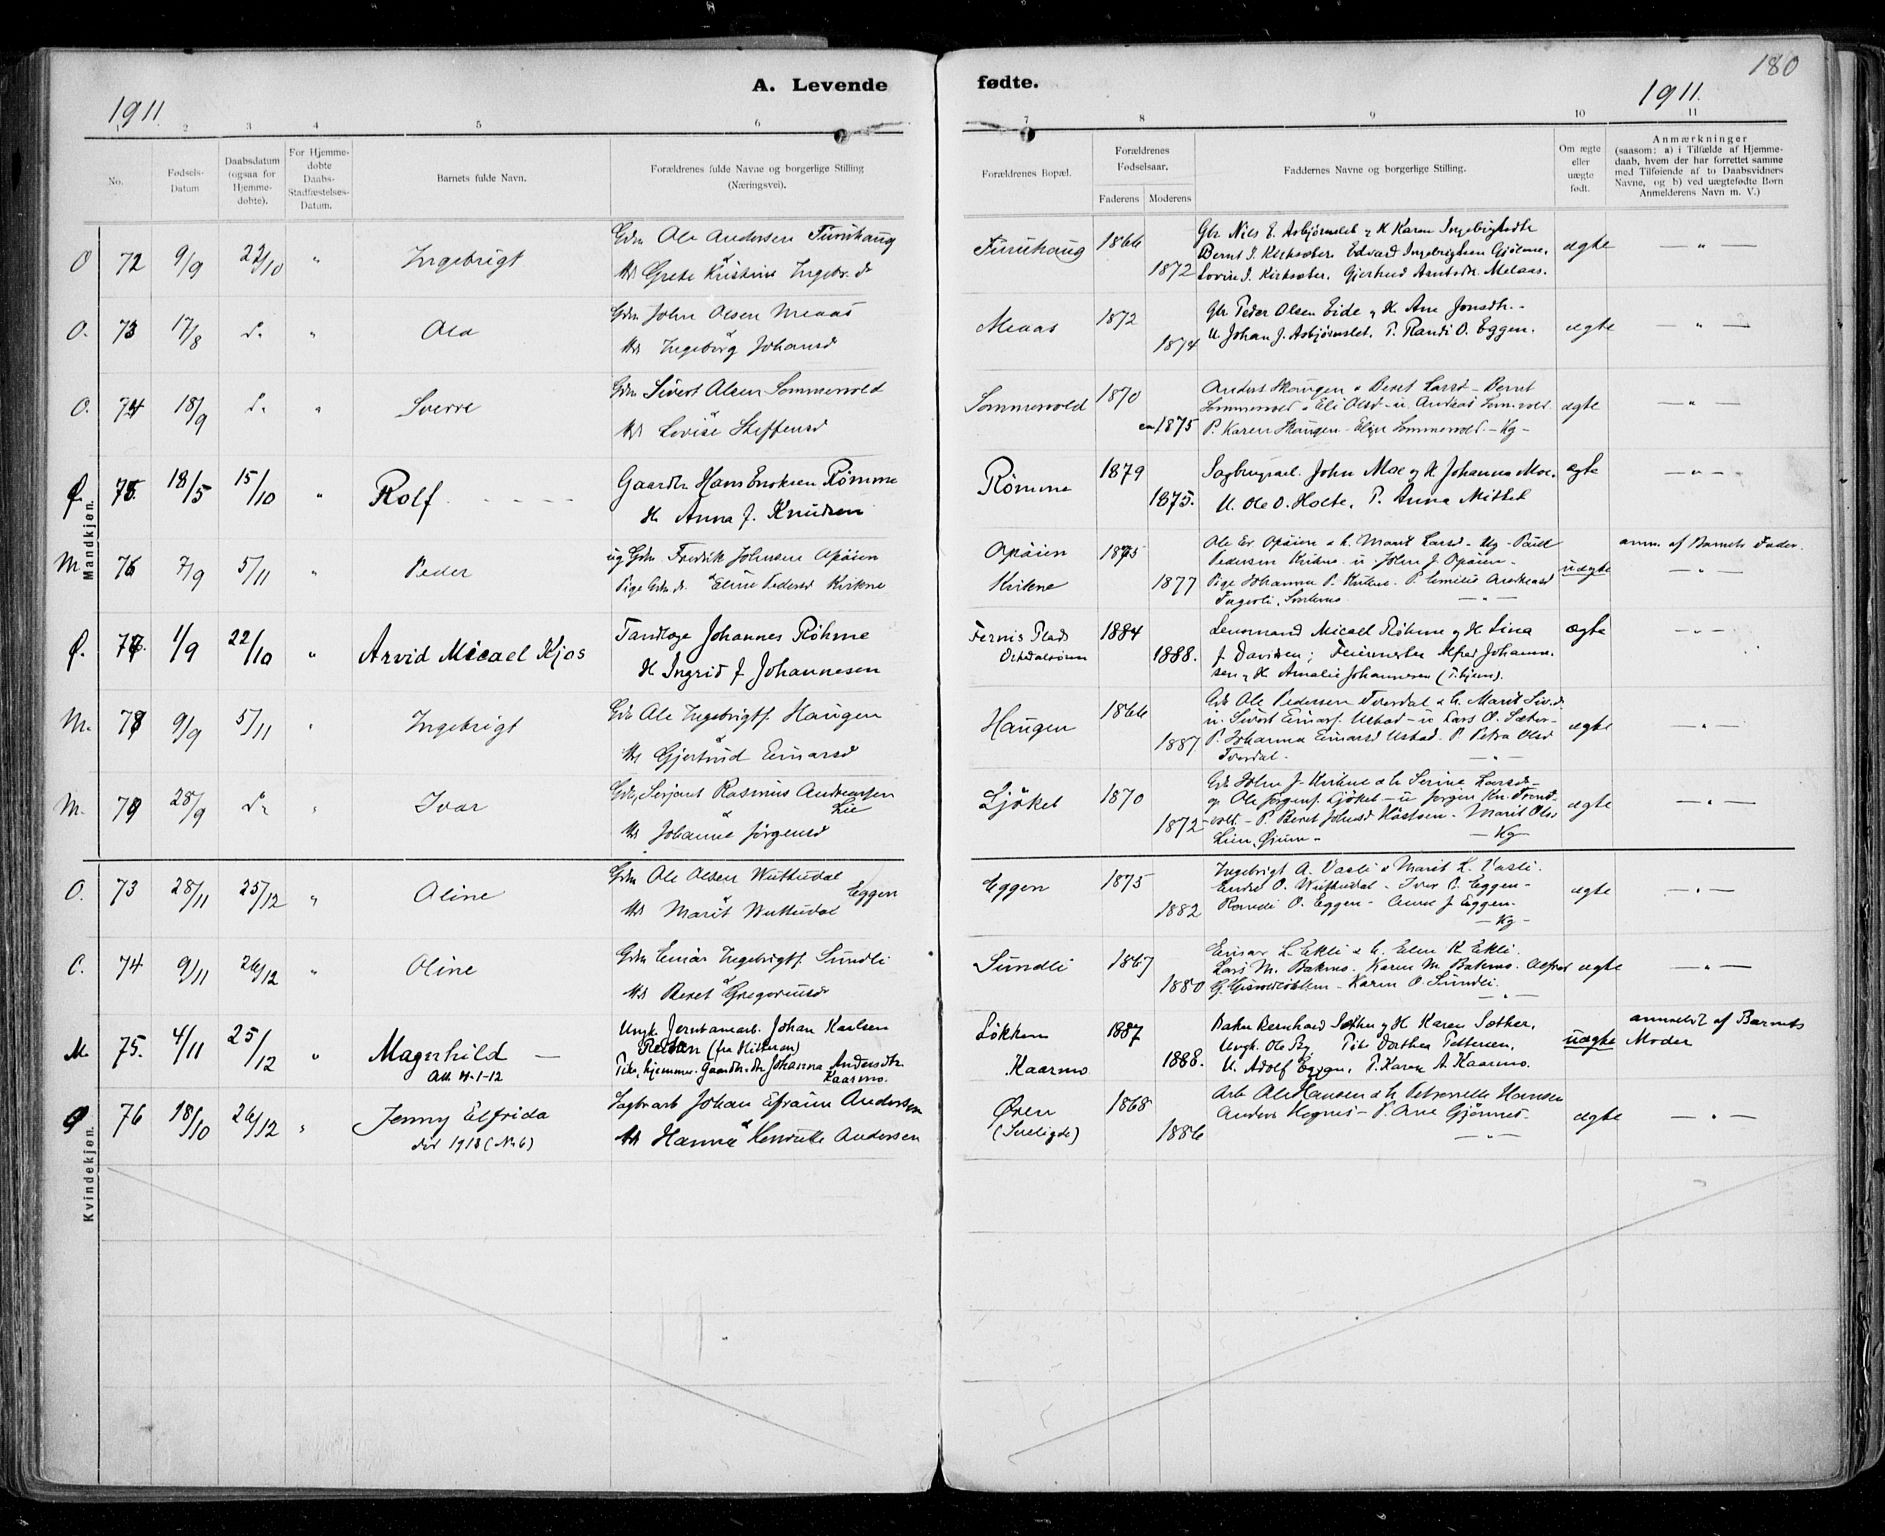 180
1911. A. Levende fødte. 1911.
1 2 3 4 5 6 7 8 9 10 11
No.
Fødsels-
Datum
Daabsdatum
(ogsaa for
Hjemme-
døbte).
For Hjemme-
døbte
Daabs-
Stadfæstelses-
Datum.
Barnets fulde Navn.
Forældrenes fulde Navne og borgerlige Stilling
(Næringsvei).
Forældrenes Bopæl.
Forældrenes
Fødselsaar.
Faderens Moderens
Faddernes Navne og borgerlige Stilling.
Om ægte
eller
uægte
født.
Anmærkninger
(saasom: a) i Tilfælde af Hjemme-
daab, hvem der har forrettet samme
med Tilføiende af to Daabsvidners
Navne, og b) ved uægtefødte Børn
Anmelderens Navn m. V.)
Mandkjøn.
O 72 9/9 22/10 " Ingebrigt
Gdm Ole Andersen Furuhaug
Grete Kristine Ingebr. d
Furuhaug 1866 1872
Gbr Nils E. Asbjørnslet & K Karen Ingebrigtsdtr
Bernt J. Kirksæter. Edvard Ingebrigtsen Gjølme.
Lovise J. Kirksæter. Gjertrud Arntsdtr. Melaas.
ægte — " —
O. 73 17/8 d. " Ola
Gdm John Olsen Meaas
Ingeborg Johansd
Meaas 1872 1874
Gbr Peder Olsen Eide & K. Ane Jonsdtr. -
U. Johan J. Asbjørnslet. P. Randi O. Eggen.
ægte — " —
O. 74 18/9 d. " Sverre
Gdm Sivert Olsen Sommervold
Lovise Steffensd
Sommervold 1870 1875
Anders Skaugen & Beret Larsd - Bernt
Sommervold & Eli Olsd - u. Andreas Somervold.
P. Karen Skaugen - Sommervold. - Kg -
ægte — " —
Ø. 75 18/5 15/10 " Rolf
Gaardbr Hans Enoksen Rømme
H. Anna J. Knudsen
Rømme 1879 1875.
Sagbrugsarb. John Moe og H Johanna Moe.
U. Ole O. Holte. P. Anna Mittet
Ægte — " —
M. 76 7/9 5/11 " Peder
ug Gdm Fredrik Johnsen Opøien
Pige Gdm.d. Eline Pedersd Kirkne
Opøien 1875 1877
Ole Er. Opøien & h. Marit Larsd - Ug - Paul
Pedersen u. John J. Opøien -
Pige Johanna P. P. Emilie Andreasd
Fagerli,
uægte
anm. af Barnets Fader.
— " —
Ø. 77 1/9 22/10 " Arvid Micael Kjos
Tandlæge Johannes Røhme
H Ingrid f Johannesen
Plads 1884 1888.
Lensmand Micael Røhme og H Lina
f Davidsen; Feiermester Alfred Johann-
sen & H Amalie Johannesen (T.hjem).
Ægte — " —
M. 78 9/9 5/11 " Ingebrigt
Ole Ingebrigtf. Haugen
Gjertrud Einarsd
Haugen 1866 1887
Ole Pedersen Tverdal & h. Marit Siv.d.
u. Sivert Einarf. Ustad - u Lars O. Sæter -
P. Johanna Einarsd Ustad. P. Petra Olsd
Tverdal. — " —
ægte — " —
M. 79 28/9 d. " Ivar
Serjant Rasmus Andreasen
Lie
Johanna Jørgensd
Ljøkel 1870 1872
John J. & h. Serine Larsd -
og Ole Jørgenf. Ljøkel - u Jørgen Kn.
P. Beret Johnsd Marit Olsd
Lien — Kg —
ægte — " —
Kvindekjøn.
O. 73 28/11 25/12 " Oline
Gdm Ole Olsen Wuttudal
Eggen
Marit Wuttudal
Eggen 1875 1882
Ingebrigt A. Vasli & Marit L. Vasli.
Endre O. Wuttudal - Iver O. Eggen -
Randi O. Eggen - Anne J. Eggen.
— Kg —
ægte — " —
O. 74 9/11 26/12 " Oline
Gdm Einar Ingebrigtf. Sundli
Beret Gregoriusd
Sundli 1867 1880
Einar L. Ekli & h. Elen K. Ekli.
Lars M. Bakmo. Karen M. Bakmo.
Karen O. Sundli.
— " —
ægte — " —
M. 75. 4/11 25/12 " Magnhild —
Att 4-1-12
Ungk. Jernbanearb. Johan Karlsen
(fra Hitteren)
Pike, hjemmev. Gaardbr.dtr Johanna Andersdtr.
Kaarmo.
Løkken
Kaarmo. 1887 1888.
Baker Bernhard Sæther og H Karen Sæther.
Ungk. Ole By, Pike Dorthea Pettersen,
U. Adolf Eggen, P. Karen A. Kaarmo.
uægte
anmeldt af Barnets
Moder
Ø 76 18/10 26/12 " Jenny Elfrida
død 1918 (No 6)
Sagbr.arb Johan Efraim Andersen
Hanna Henrikke Andersen
Øren
1868 1886
Arb Ole Hansen & h. Petronelle Hansen
Anders Hognes - P. Ane Gjønnes -
— " —
ægte — " —